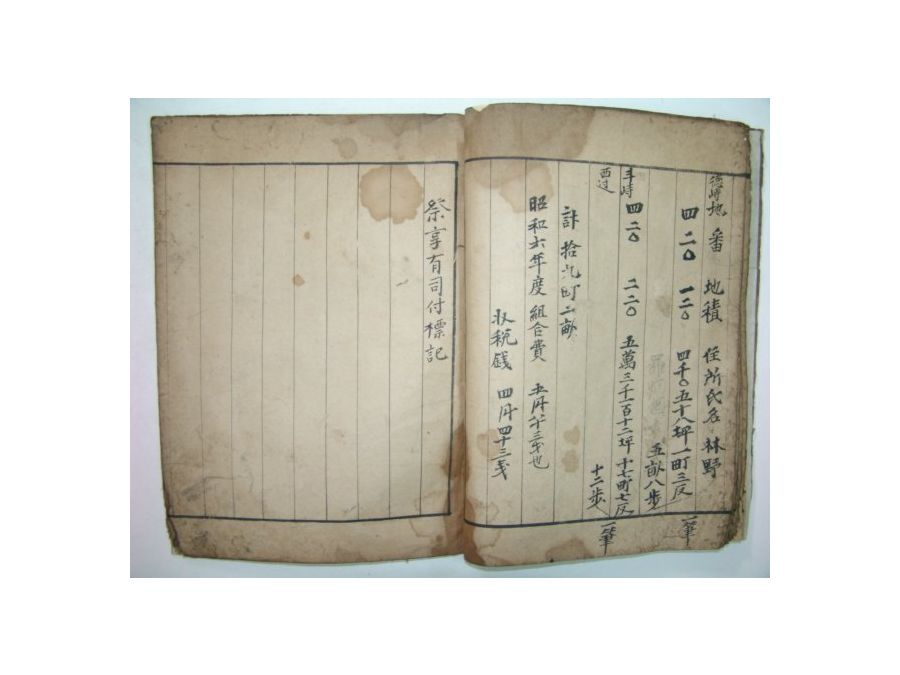 德峙 地番 地積 住所氏名 林野
四二〇 一二〇 四千〇五十八坪 一町三反
五畝八步 一筆
西辺
四二〇 二二〇 五萬三千一百十二坪 十七町七反
十二步 一筆
計 拾九町二畝
昭和六年度 組合費 五円卄三戔也
収税錢 四円四十三戔
祭享有司付標記